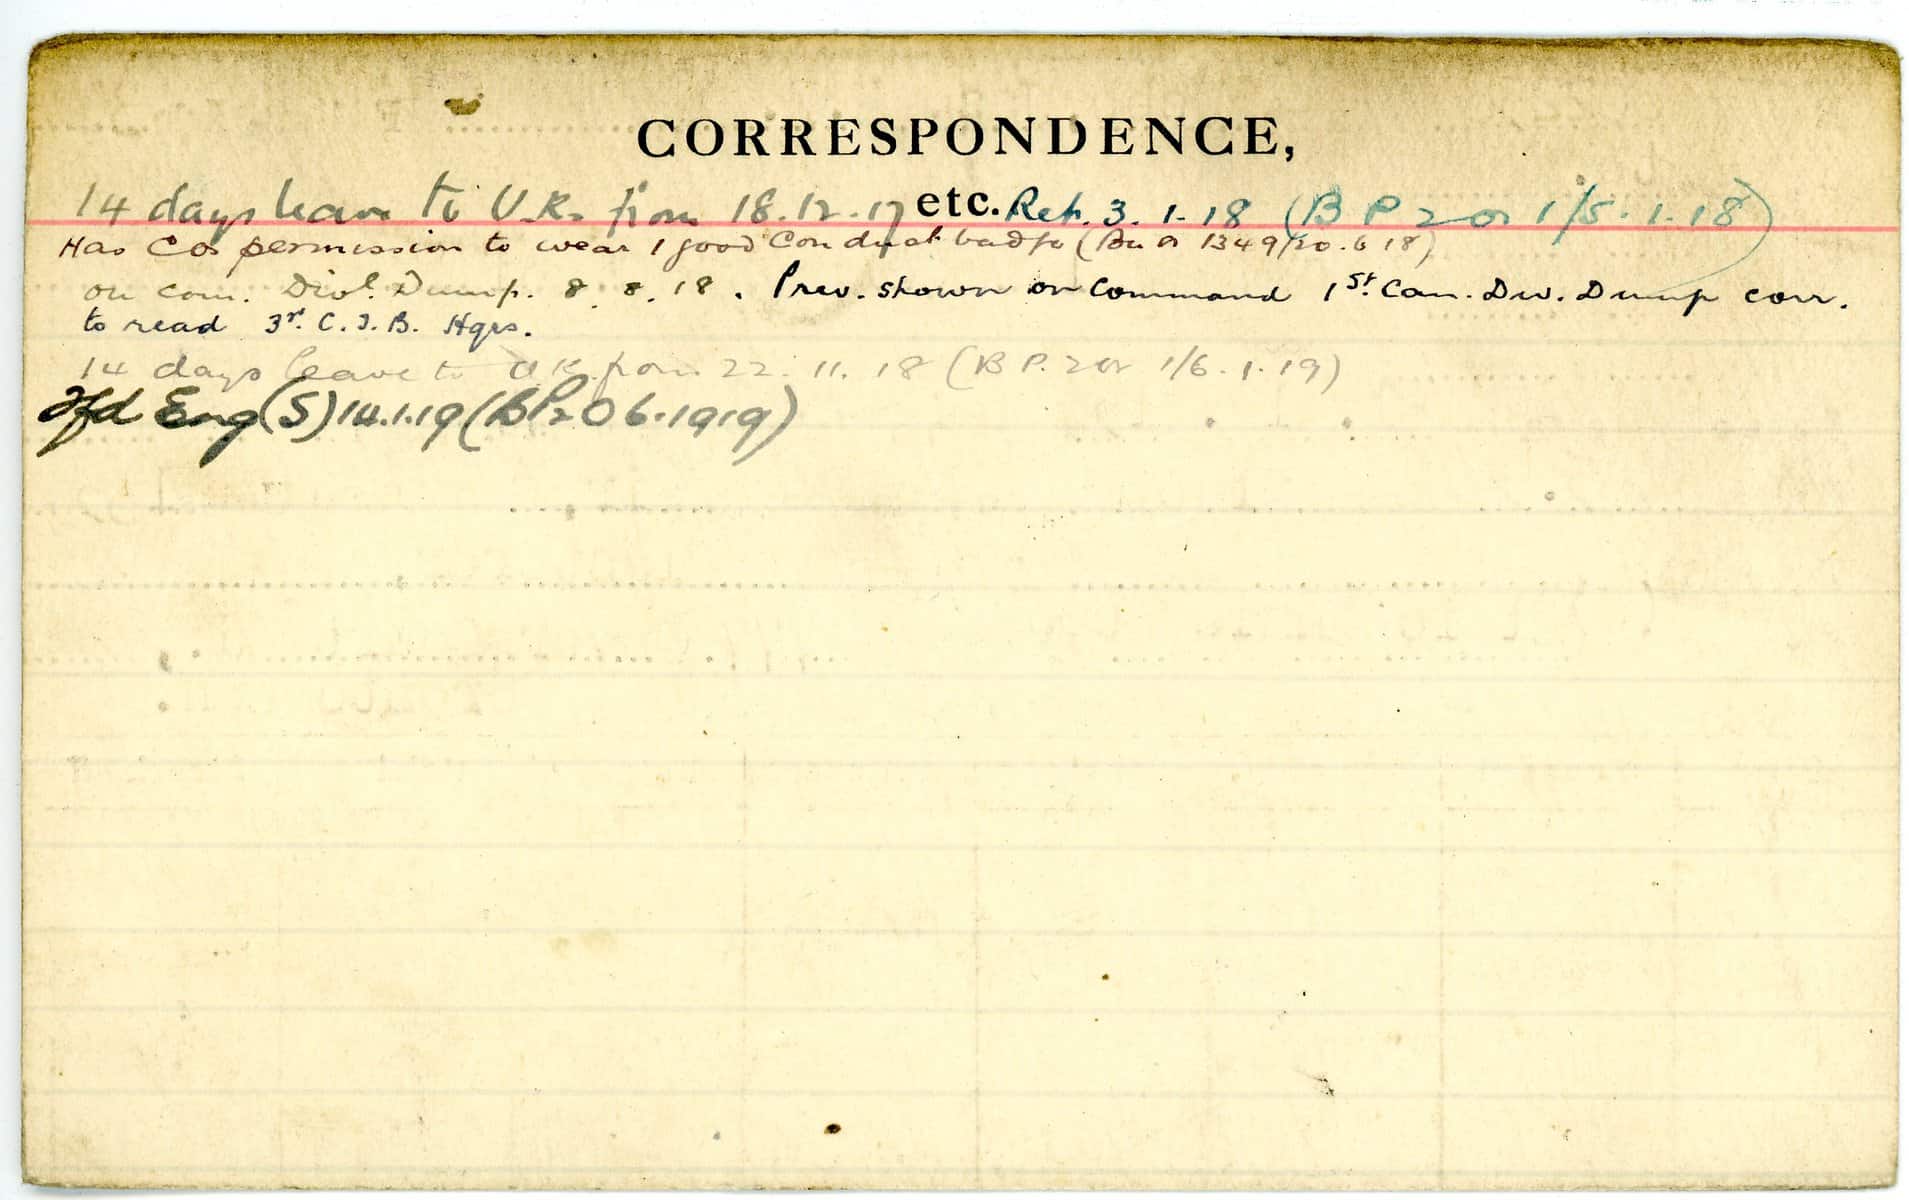 CORRESPONDENCE,
14 days leave to U.K. from 18.12.17 etc. Ret. 3.1.18 (B P 2 or 1/5.1.18)
Has COs permission to wear 1 good Conduct badge (Bn or 1349/20.6.18)
on com. Divl. Dump. 8.8.18. Prev. shown on Command 1st. Can. Div. Dump corr.
to read 3rd. C.I.B. Hqrs.
14 days leave to UK from 22.11.18 (B P. 2 or 1/6.1.19)
Tfd Eng (S) 14.1.19 (BP2 O 6.1919)